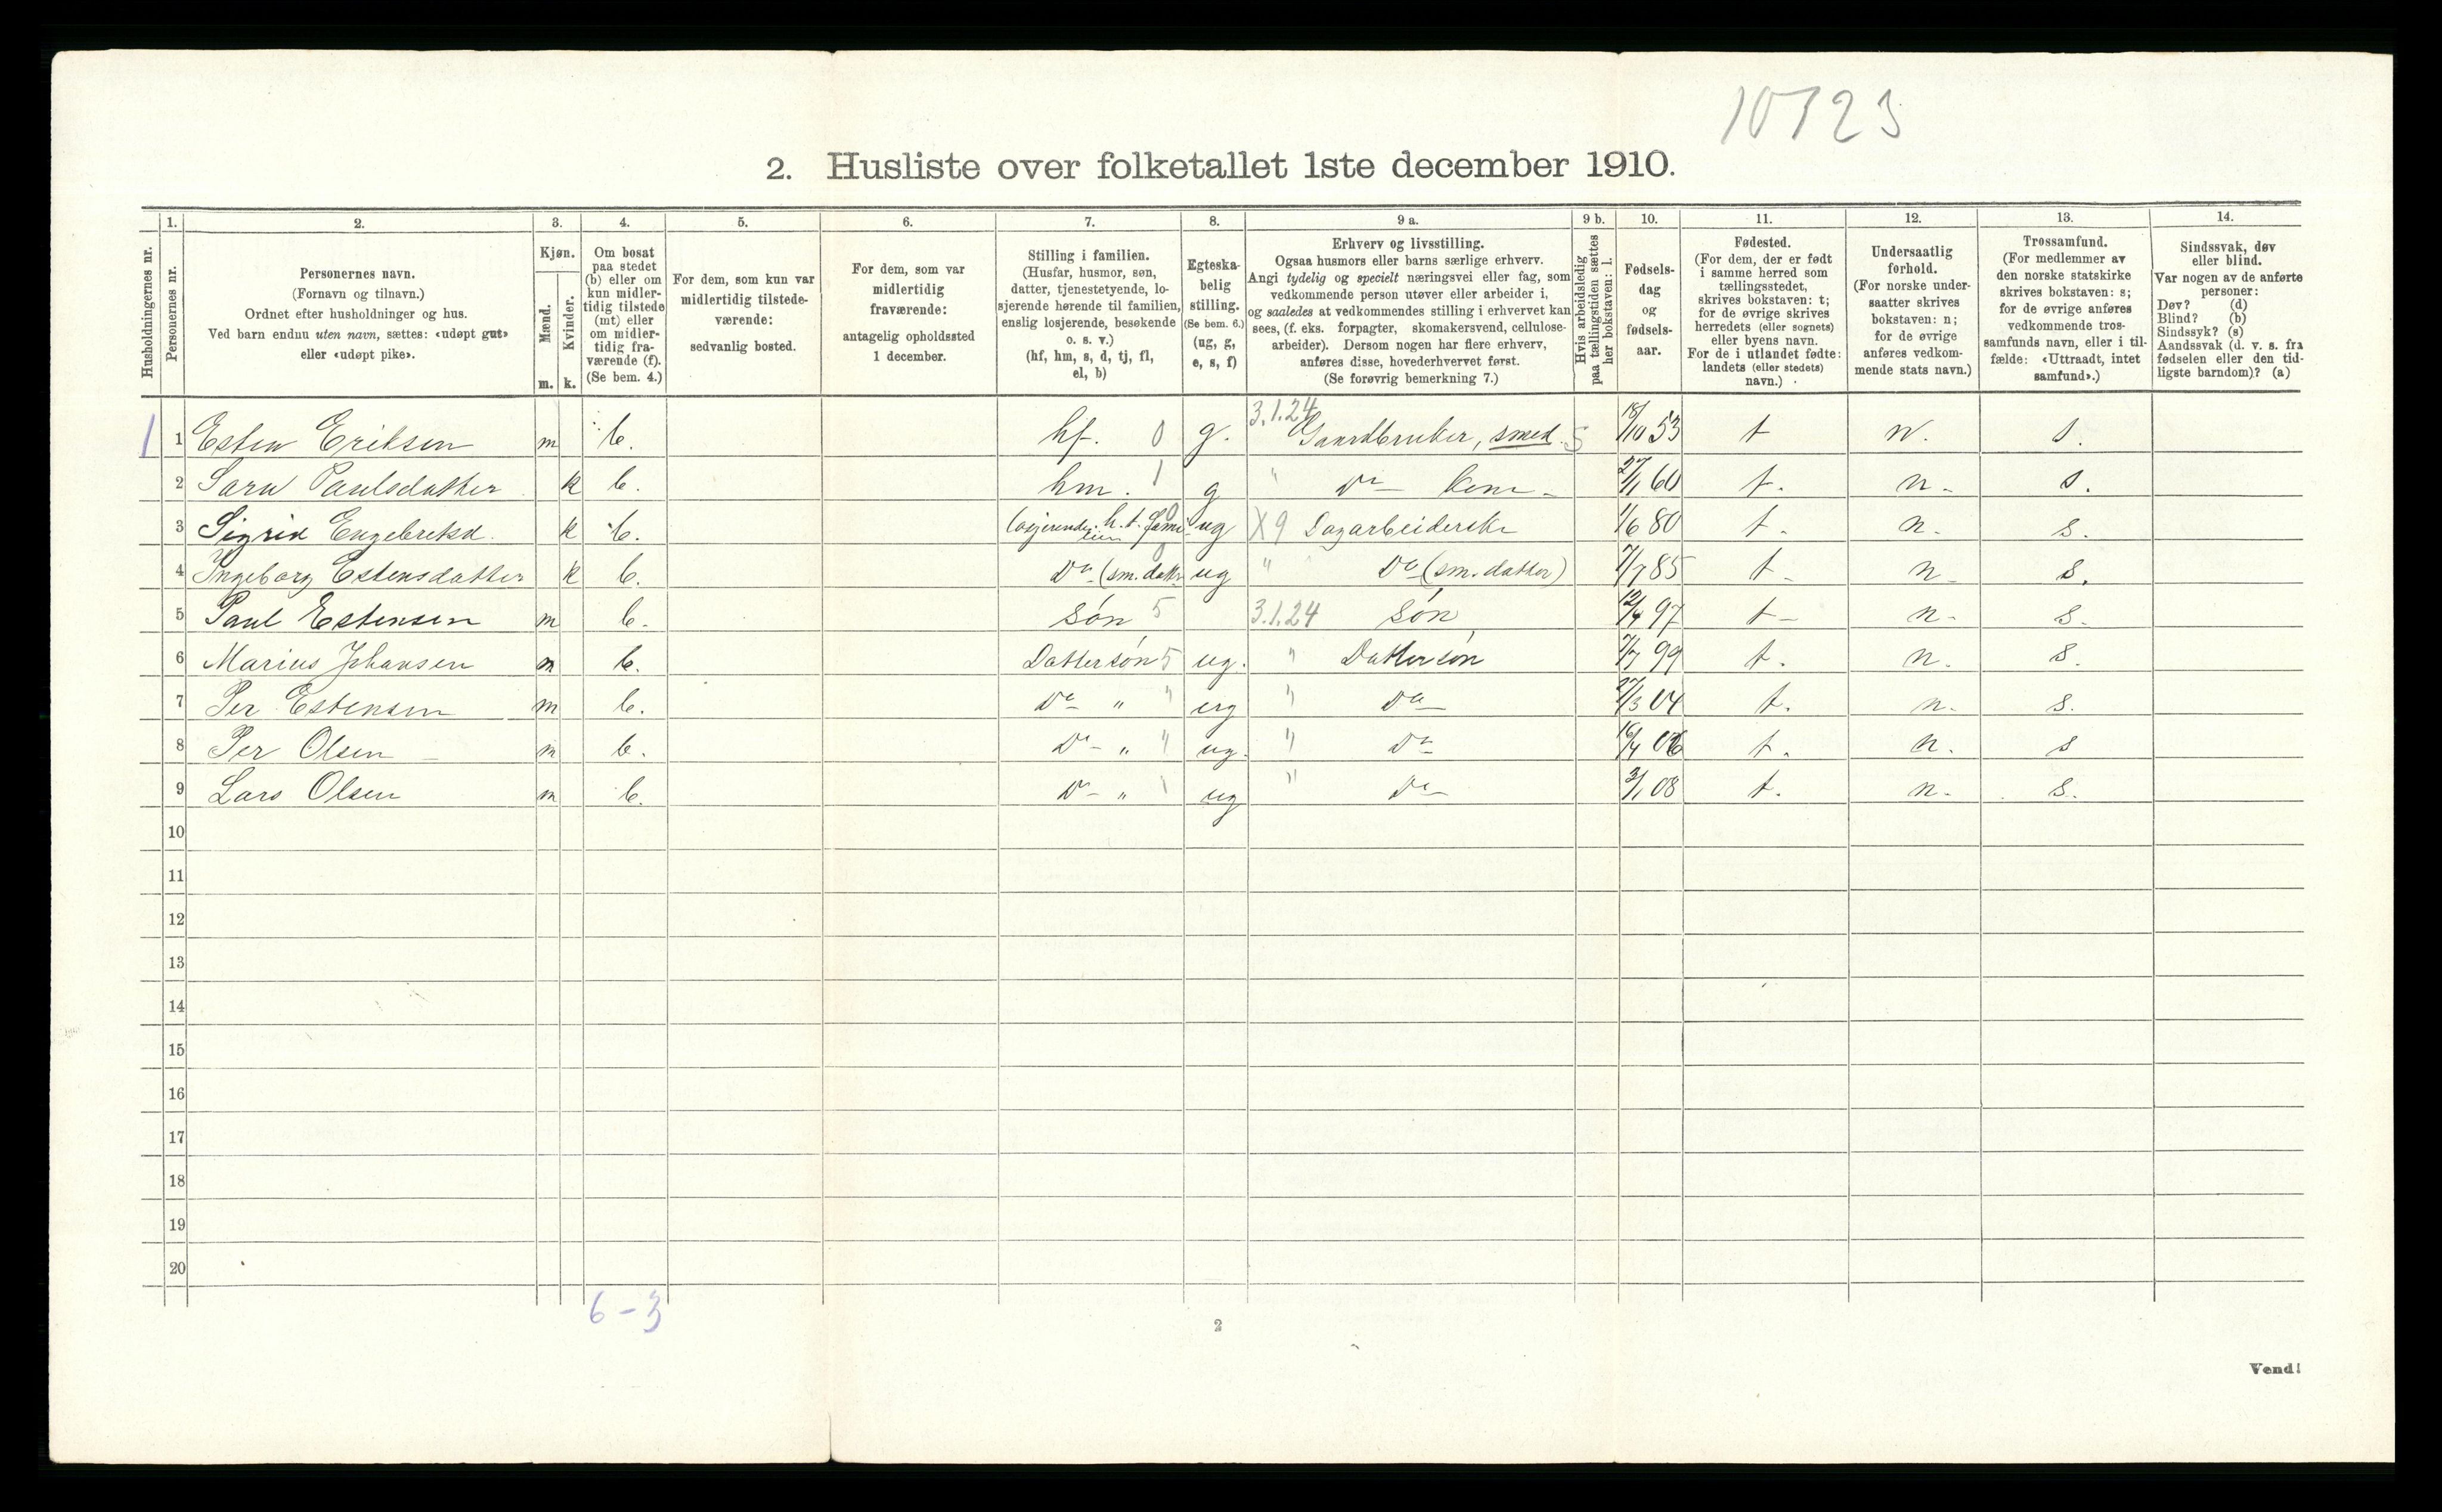 10723
2. Husliste over folketallet 1ste december 1910.
1. 2. 3. 4. 5. 6. 7. 8. 9 a. 9 b. 10. 11. 12. 13. 14.
Husholdningernes nr.
Personernes nr.
Personernes navn.
(Fornavn og tilnavn.)
Ordnet efter husholdninger og hus.
Ved barn endnu uten navn, sættes: «udøpt gut»
eller «udøpt pike».
Kjøn.
Mænd.
Kvinder.
m. k.
Om bosat
paa stedet
(b) eller om
kun midler-
tidig tilstede
(mt) eller
om midler-
tidig fra-
værende (f).
(Se bem. 4.)
For dem, som kun var
midlertidig tilstede-
værende:
sedvanlig bosted.
For dem, som var
midlertidig
fraværende:
antagelig opholdssted
1 december.
Stilling i familien.
(Husfar, husmor, søn,
datter, tjenestetyende, lo-
sjerende hørende til familien,
enslig losjerende, besøkende
o. s. v.)
(hf, hm, s, d, tj, fl,
el, b)
Egteska-
belig
stilling.
(Se bem. 6.)
(ug, g,
e, s, f)
Erhverv og livsstilling.
Ogsaa husmors eller barns særlige erhverv.
Angi tydelig og specielt næringsvei eller fag, som
vedkommende person utøver eller arbeider i,
og saaledes at vedkommendes stilling i erhvervet kan
sees, (f. eks. forpagter, skomakersvend, cellulose-
arbeider). Dersom nogen har flere erhverv,
anføres disse, hovederhvervet først.
(Se forøvrig bemerkning 7.)
Hvis arbeidsledig
paa tællingstiden sættes
her bokstaven: l.
Fødsels-
dag
og
fødsels-
aar.
Fødested.
(For dem, der er født
i samme herred som
tællingsstedet,
skrives bokstaven: t;
for de øvrige skrives
herredets (eller sognets)
eller byens navn.
For de i utlandet fødte:
landets (eller stedets)
navn.)
Undersaatlig
forhold.
(For norske under-
saatter skrives
bokstaven: n;
for de øvrige
anføres vedkom-
mende stats navn.)
Trossamfund.
(For medlemmer av
den norske statskirke
skrives bokstaven: s;
for de øvrige anføres
vedkommende tros-
samfunds navn, eller i til-
fælde: «Uttraadt, intet
samfund».)
Sindssvak, døv
eller blind.
Var nogen av de anførte
personer:
Døv? (d)
Blind? (b)
Sindssyk? (s)
Aandssvak (d. v. s. fra
fødselen eller den tid-
ligste barndom)? (a)
1 1 Esten Eriksen m b. hf. 0 g. 3.1.24 Gaardbruker, smed. 5 18/10 53 t n. s.
2 Sara Paulsdatter k b. hm. 1 g " Do kone 27/1 60 t. n. s.
3 Sigrid Engebretsd. k b. losjerende h. t. familien 0 ug X9 Dagarbeiderske 1/6 80 t. n. s.
4 Ingeborg Estensdatter k b. Do (sm. datter 0 ug " Do (sm. datter) 7/7 85 t n s.
5 Paul Estensen m b. søn 5 3.1.24 søn 12/4 97 t n. s.
6 Marius Johansen m b. Dattersøn 5 ug. " Dattersøn 7/7 99 t. n. s.
7 Per Estensen m b. Do " " ug " Do 27/3 04 t. n. s.
8 Per Olsen m b. Do " " ug. " Do 16/4 06 t. n. s
9 Lars Olsen m b. Do " 1 ug " Do 3/1 08 t. n. s.
10
11
12
13
14
15
16
17
18
19
20
6 – 3
2
Vend!